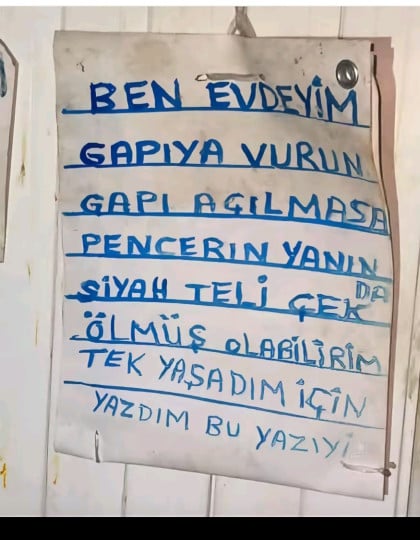 BEN EVDEYİM
GAPIYA VURUN
GAPI AÇILMASA
PENCERIN YANIN
DA
SİYAH TELİ ÇEK
ÖLMÜŞ OLABİLİRİM
TEK YAŞADIM İÇİN
YAZDIM BU YAZIYI